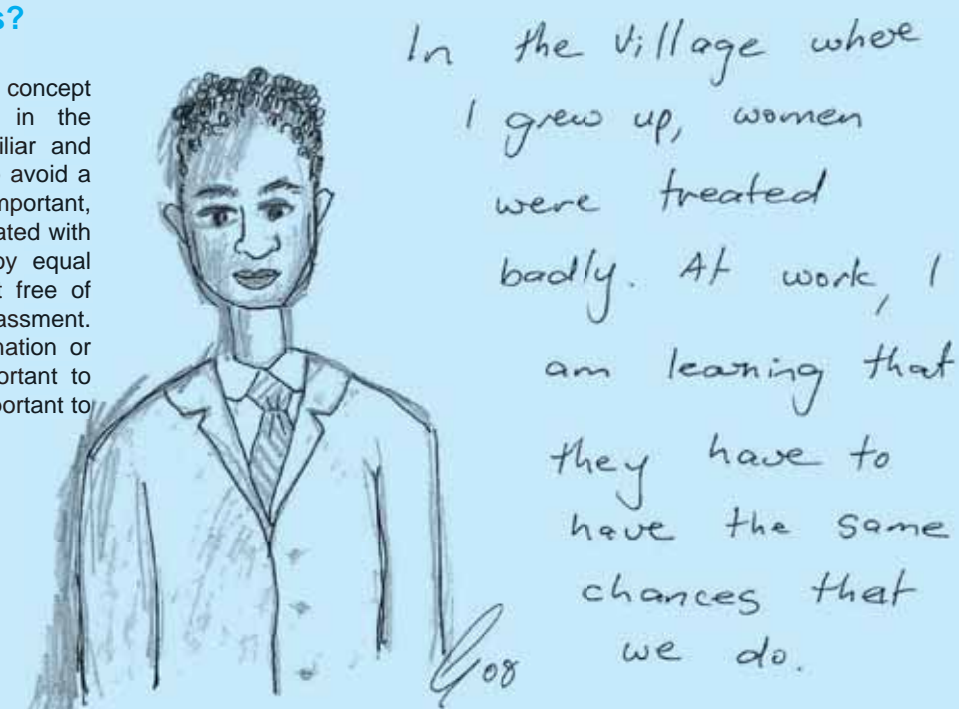 s?
concept
in the
iliar and
avoid a
mportant,
ated with
oy equal
t free of
assment.
nation or
ortant to
portant to
In the village where
I grew up, women
were treated
badly. At work, I
am learning that
they have to
have the same
chances that
we do.
08